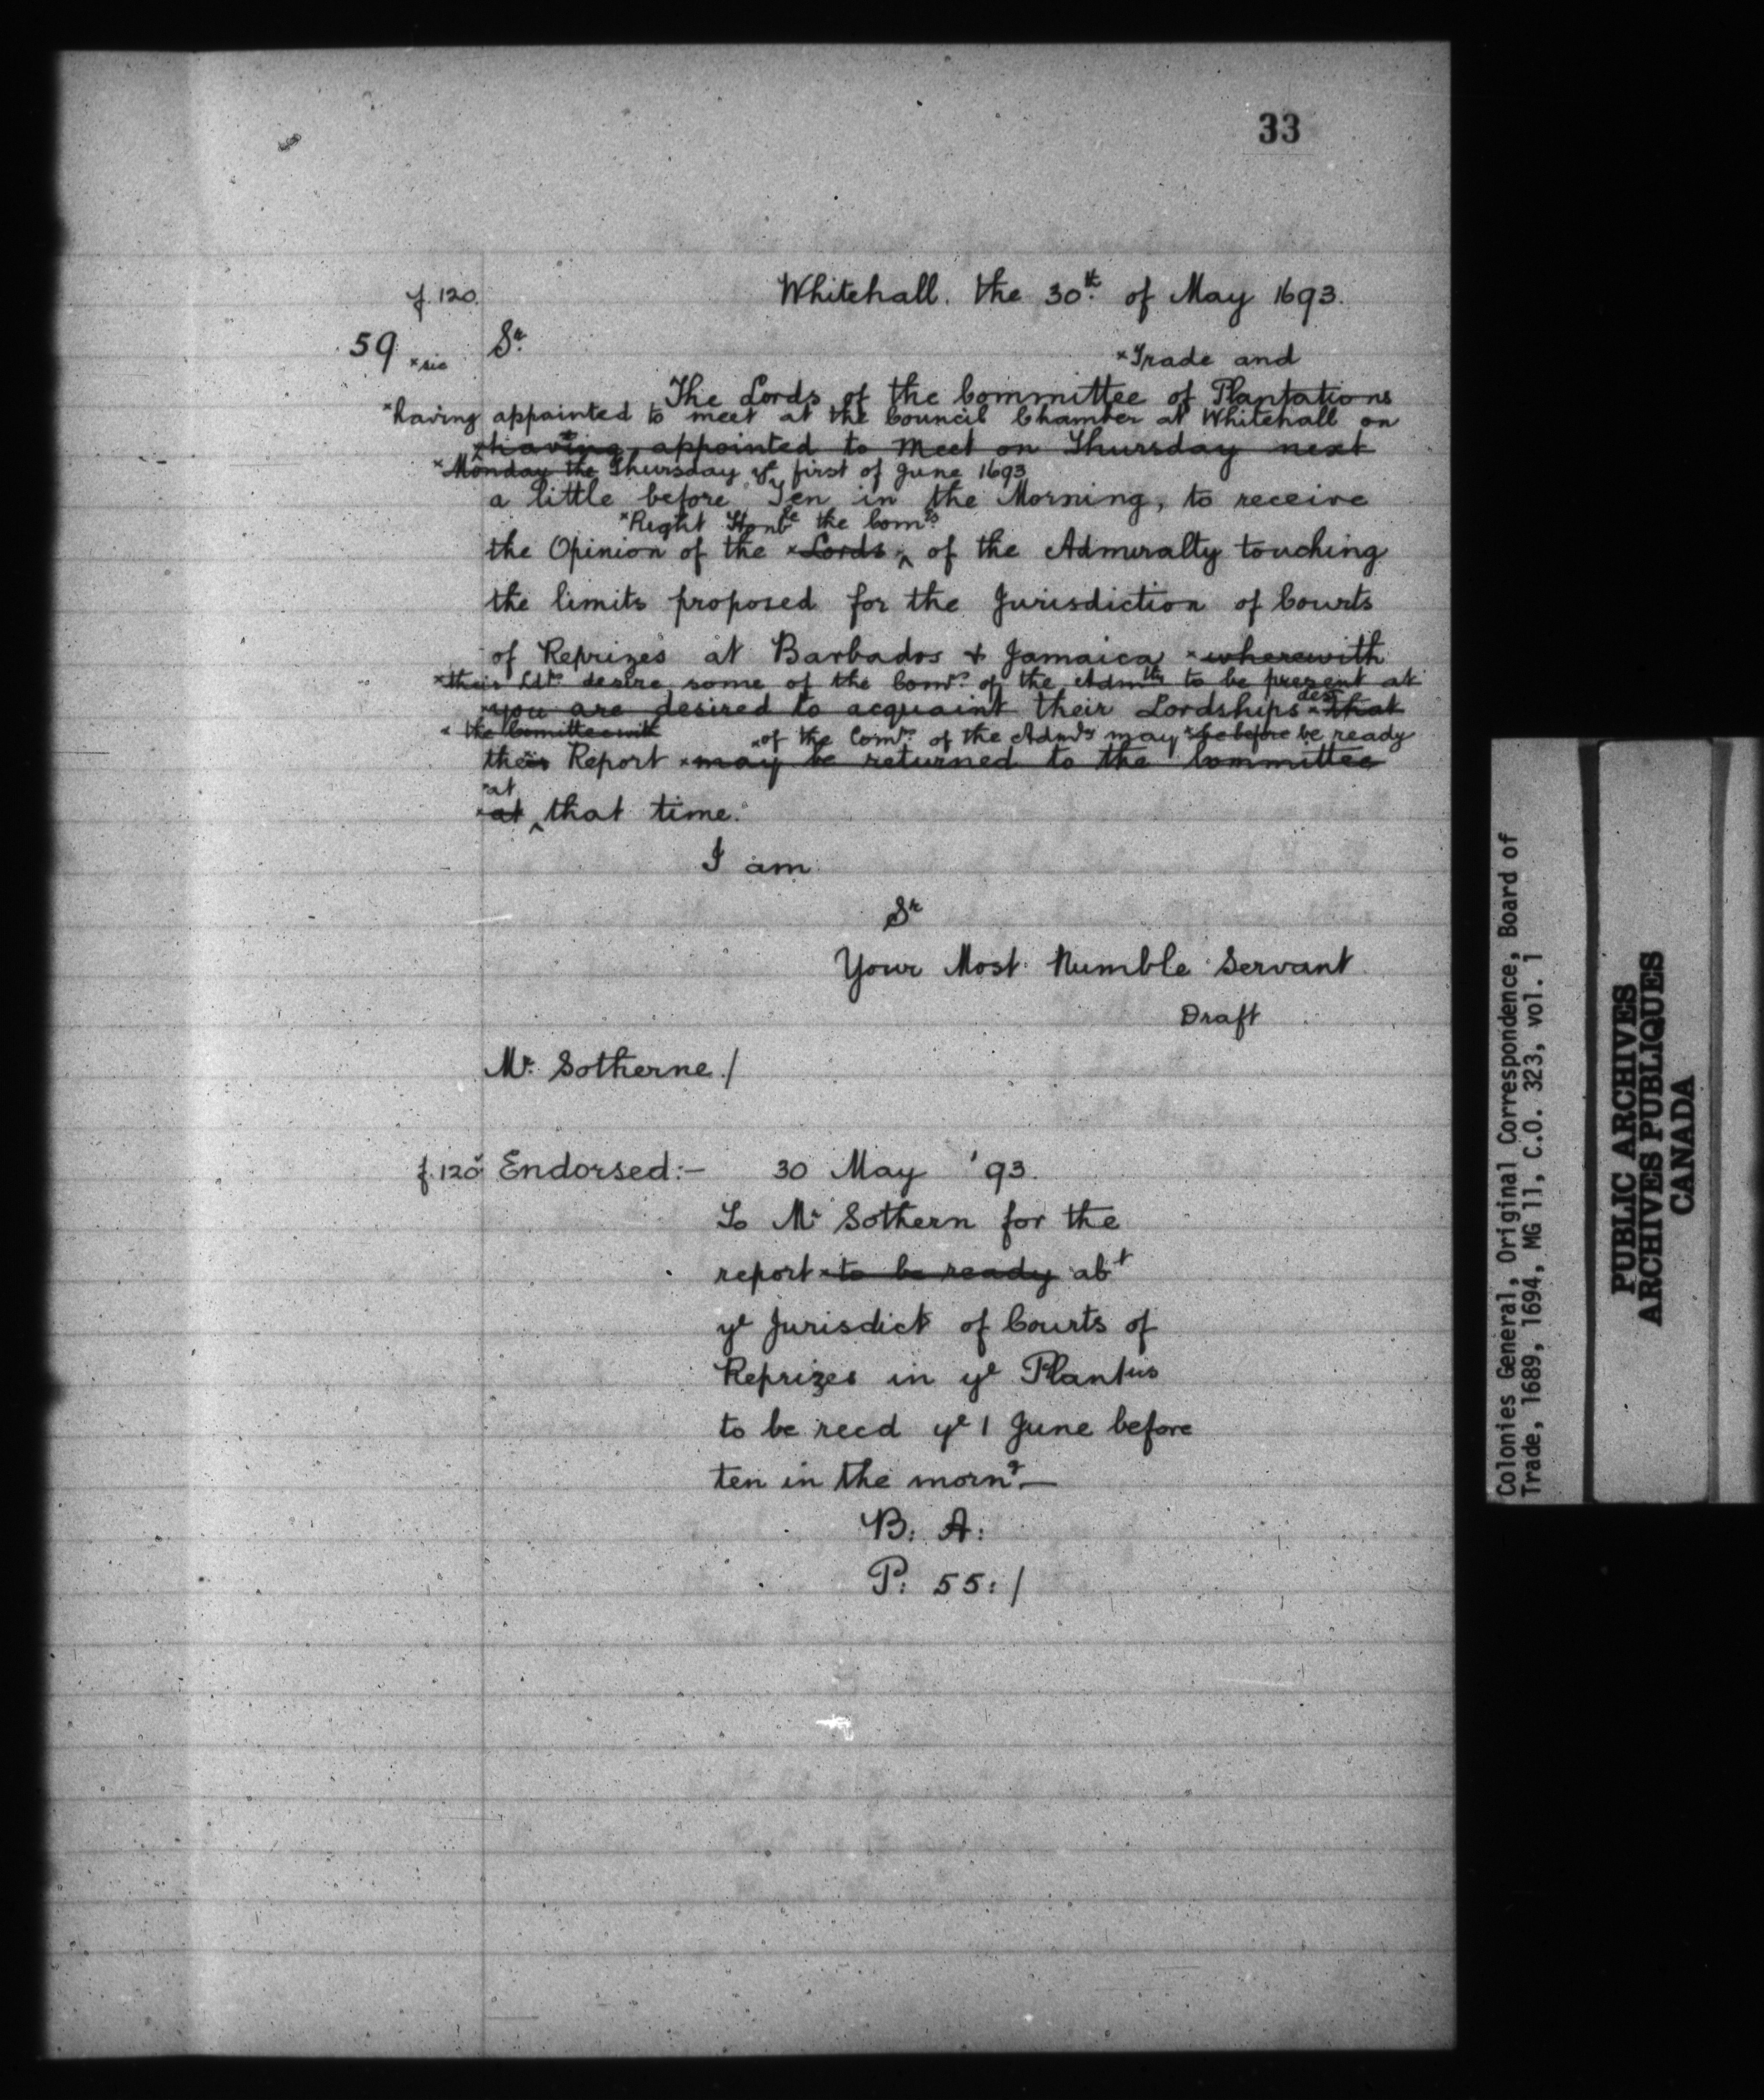 33
f. 120. Whitehall. the 30th. of May 1693.
59 xsic Sr.
xTrade and
The Lords of the Committee of Plantations
xhaving appointed to meet at the Council Chamber at Whitehall on
xhaving appointed to meet on Thursday next
xMonday the Thursday ye first of June 1693
a little before Ten in the Morning, to receive
xRight Honble the Comrs
the Opinion of the xLords ^ of the Admiralty touching
the limits proposed for the Jurisdiction of Courts
of Reprizes at Barbados & Jamaica xwherewith
xtheir Ldps desire some of the Comrs. of the Admlty to be present at
xyou are desired to acquaint their Lordships xthat
x the Committee with xof the Comrs. of the Admlty may be ready
their Report xmay be returned to the Committee
xat
xat ^ that time.
I am
Sr
Your Most Humble Servant
Draft
Mr. Sotherne /
f.120v Endorsed:- 30 May '93.
To Mr Sothern for the
report xto be ready abt
ye Jurisdict of Courts of
Reprizes in ye Plantns
to be recd ye 1 June before
ten in the morng.—
B: A:
P: 55: /
Colonies General, Original Correspondence, Board of
Trade, 1689, 1694, MG 11, C.O. 323, vol. 1
PUBLIC ARCHIVES
ARCHIVES PUBLIQUES
CANADA